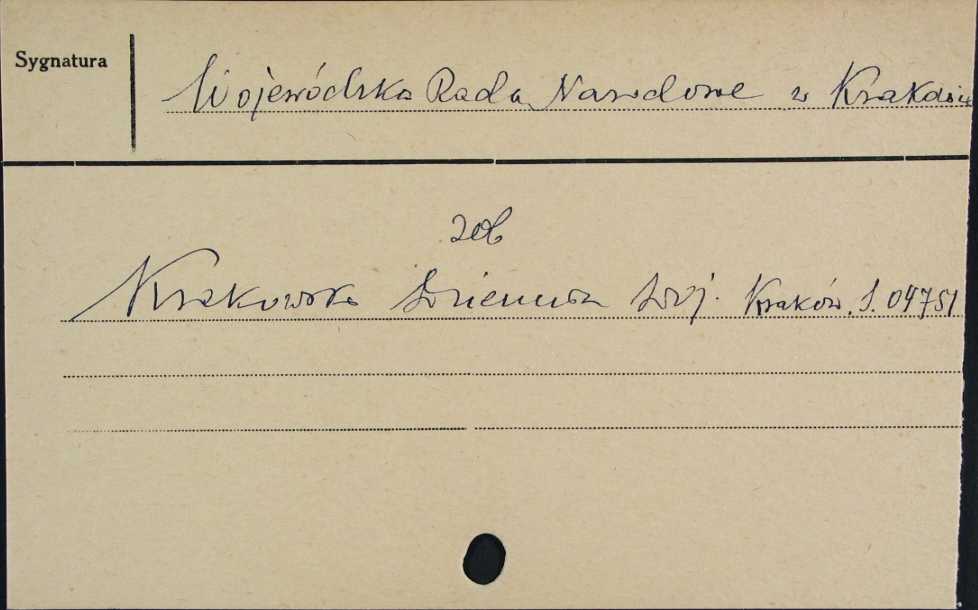 Sygnatura
Wojewódzka Rada Narodowa w Krakowie
zob
Krakowska Dzienni Woj. Kraków. S. 04751